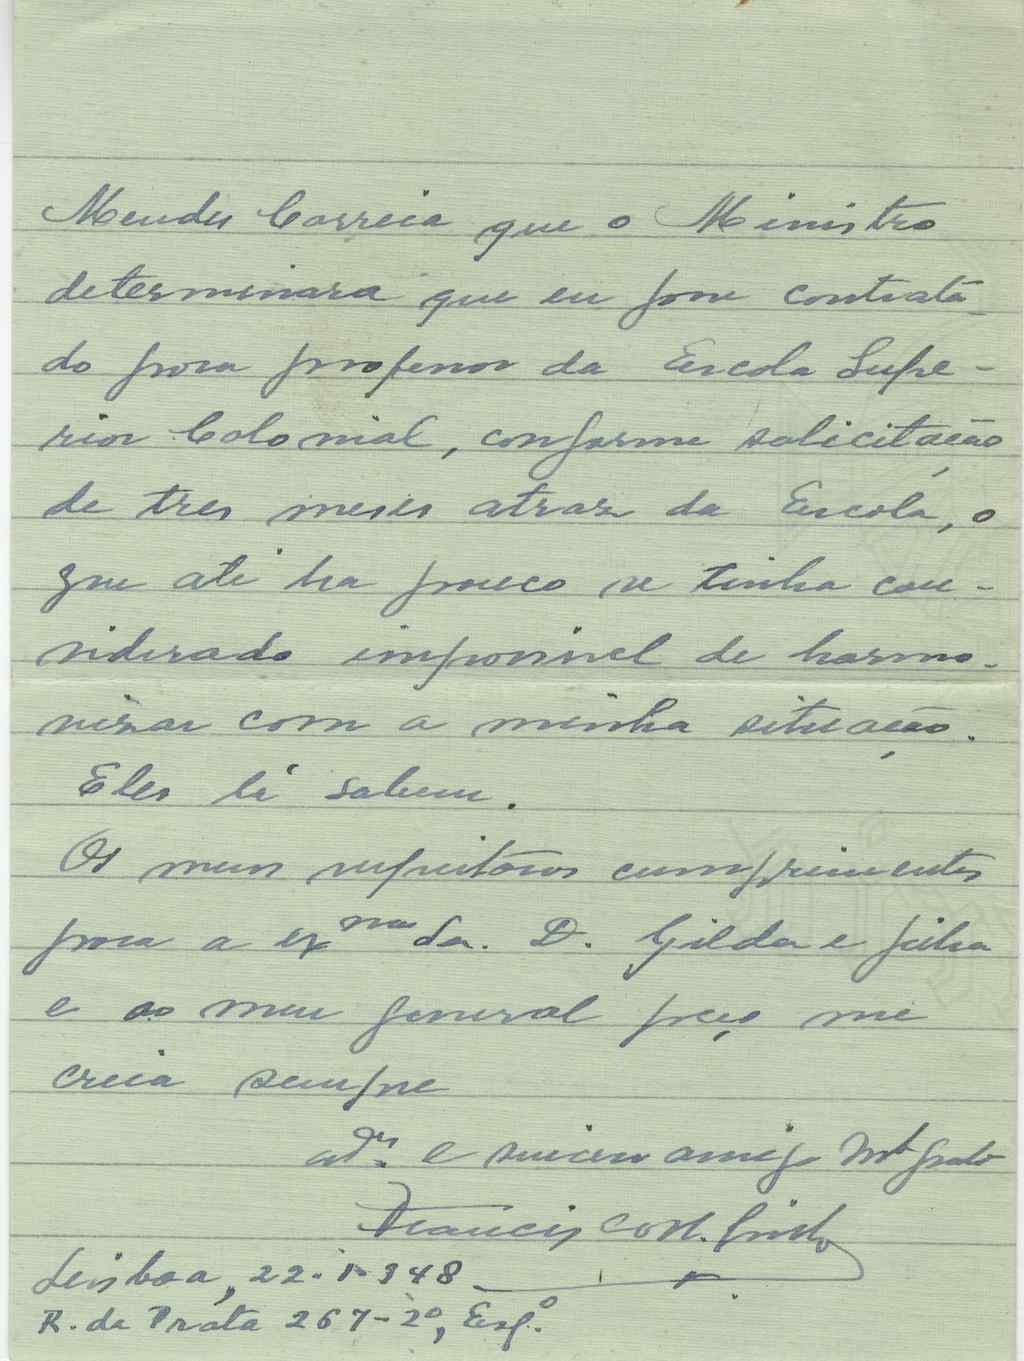 Mendes Correia que o Ministro
determinara que eu fosse contrata-
do para professor da Escola Supe-
rior Colonial, conforme solicitação
de tres meses atraz da Escola, o
que até ha pouco se tinha con-
siderado impossivel de harmo-
nizar com a minha situação.
Eles lá sabem.
Os meus respeitosos cumprimentos
para a exma Sra. D. Gilda e filha
e ao meu general peço me
creia sempre
adm. e sincero amigo mt grato
Francisco
Lisboa, 22-1-948
R. da Prata 267-2º, Esq.º